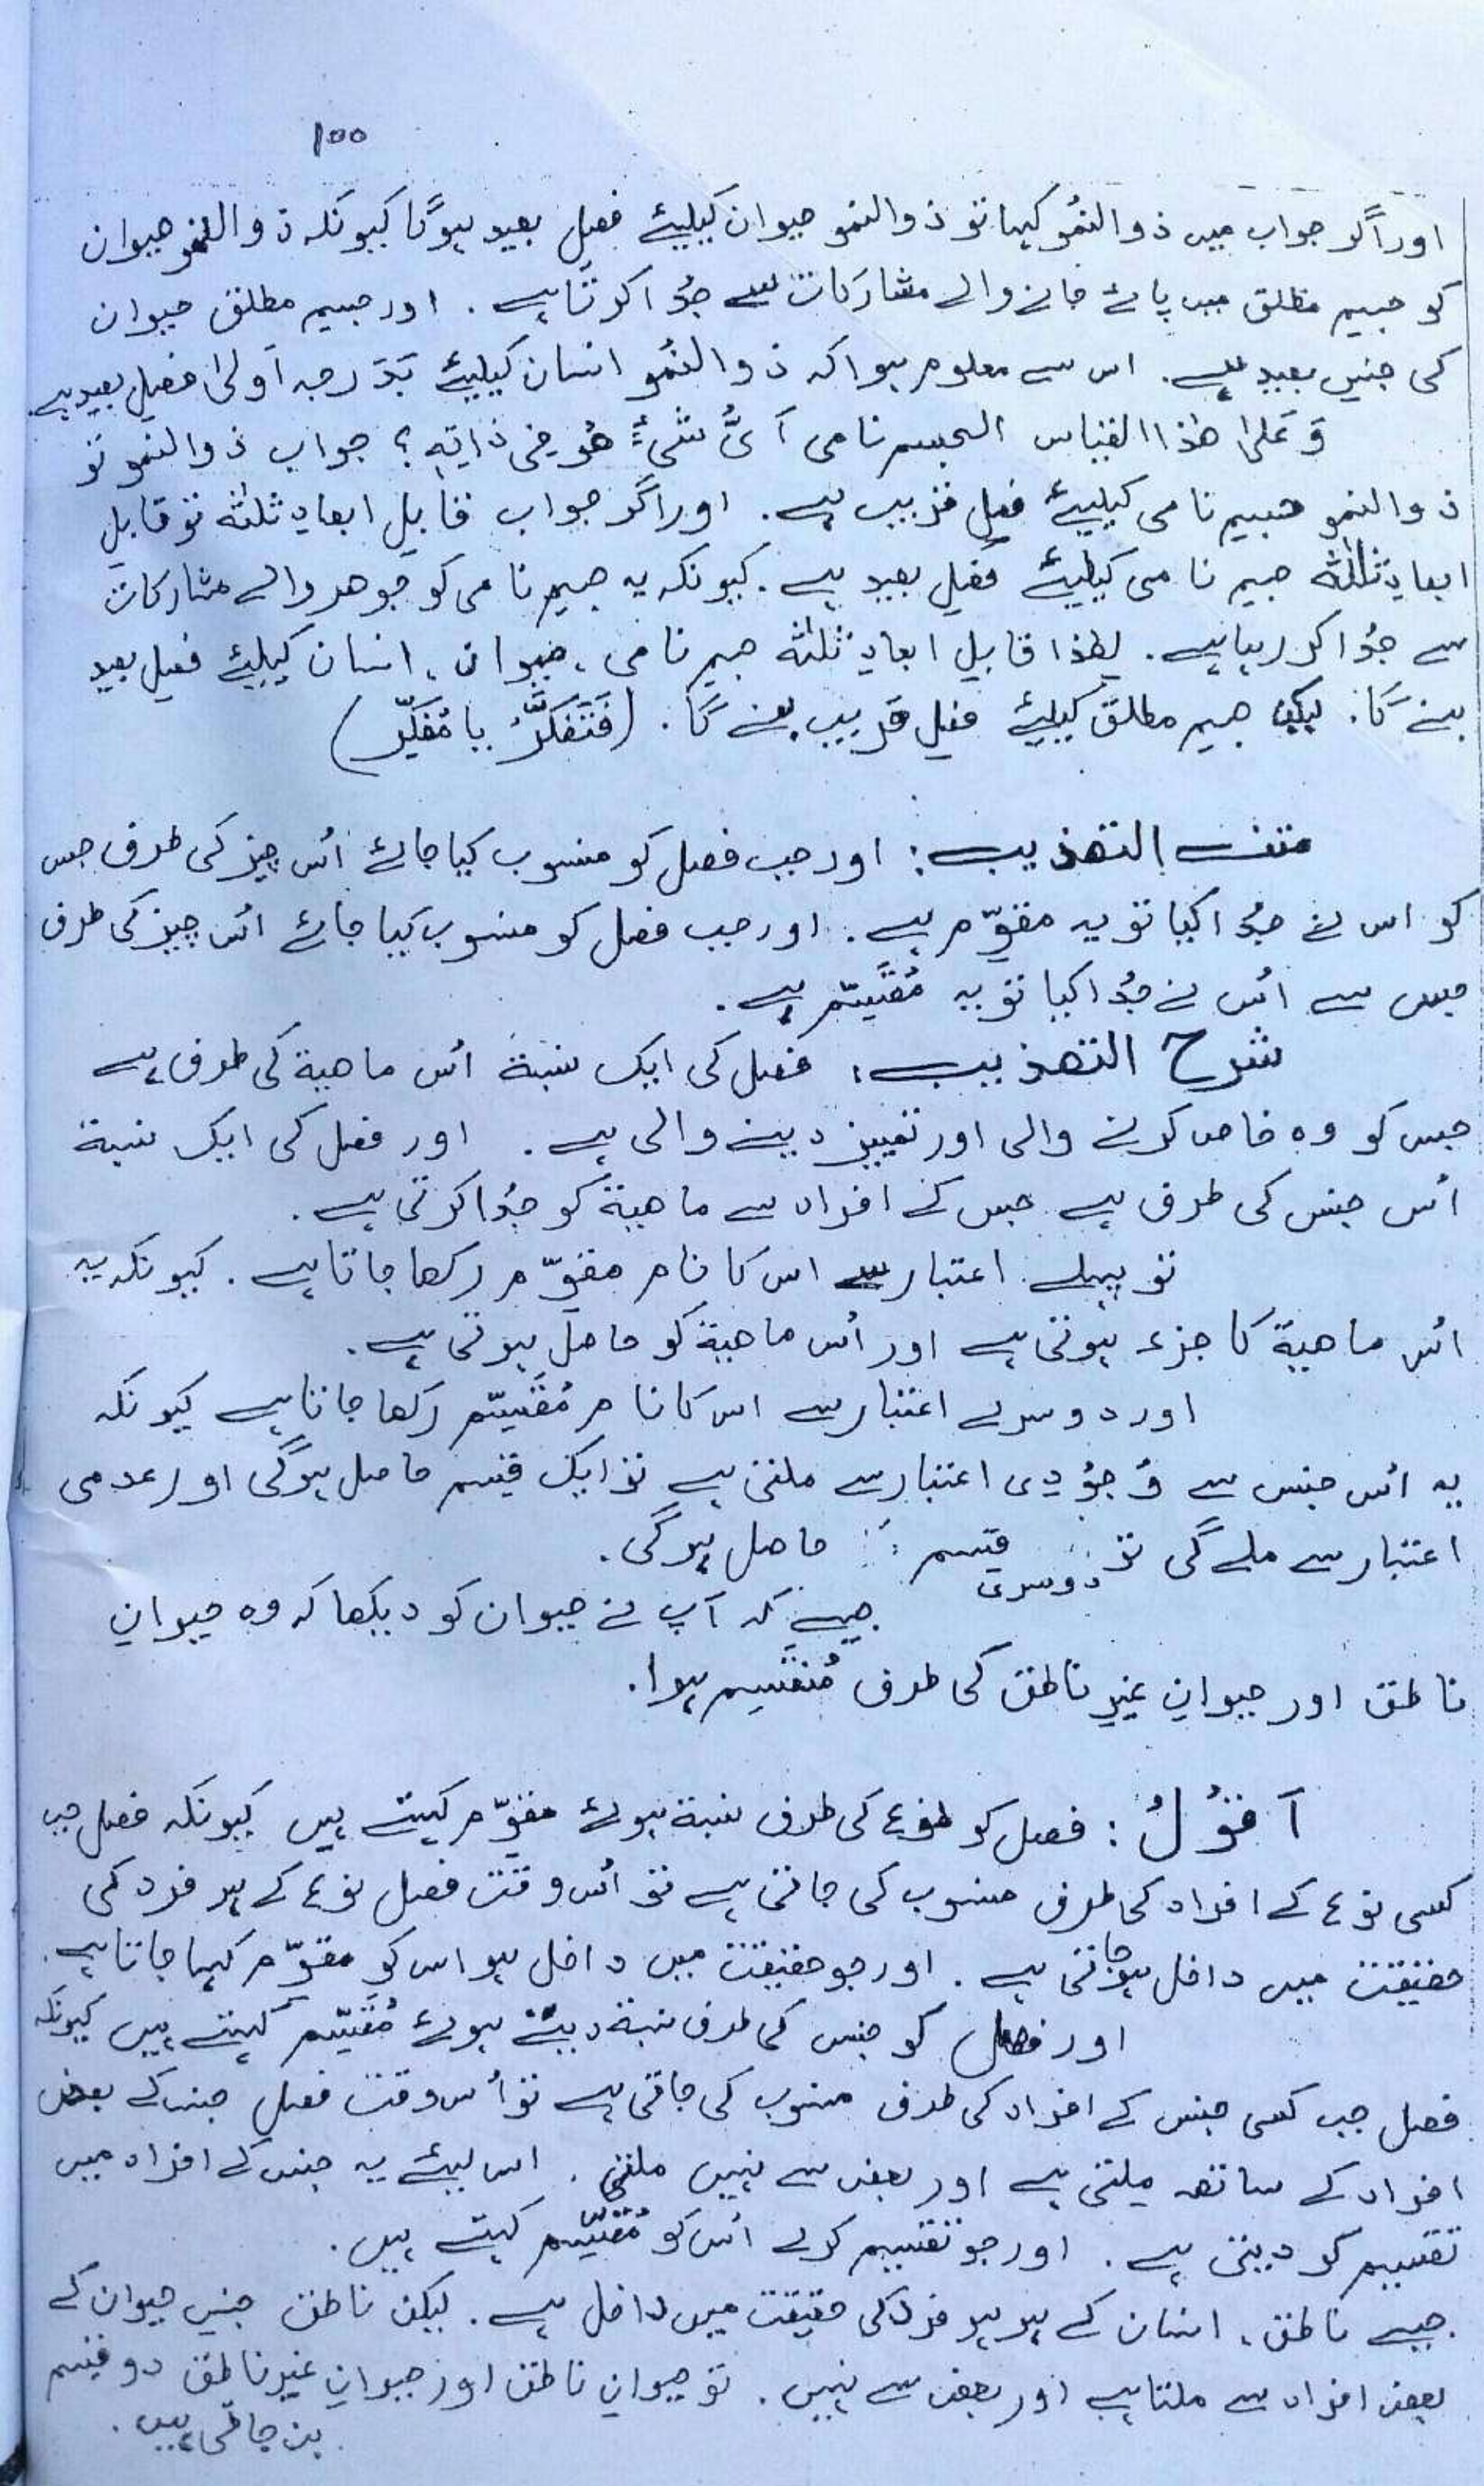 ۱۰۰
اور اگر جواب میں ذوالنمُو کہا تو ذوالنمو حیوان کیلیئے فصلِ بعید ہوگا کیونکہ ذوالنمو حیوان
کو جسیم مطلق میں پائے جانے والے مشارکات سے جُدا کرتا ہے . اور جسیم مطلق حیوان
کی جنسِ بعید ہے . اس سے معلوم ہوا کہ ذوالنمُو انسان کیلیئے بَدَرجہ اَولیٰ فصلِ بعید ہے.
وَعَلیٰ ھٰذا القیاس الجسم نامی اَیُّ شیءٍ ھُو فی ذاتِہٖ ؟ جواب ذوالنمو تو
ذوالنمو جسیم نامی کیلیئے فصلِ قریب ہے . اور اگر جواب قابلِ ابعادِ ثلٰثہ تو قابلِ
ابعادِ ثلٰثہ جسیم نامی کیلیئے فصلِ بعید ہے . کیونکہ یہ جسیمِ نامی کو جوھر والے مشارکات
سے جُدا کر رہا ہے . لھٰذا قابلِ ابعادِ ثلٰثہ جسیم نامی ، حیوان ، انسان کیلیئے فصلِ بعید
بنے گا . لیکن جسیم مطلق کیلیئے فصلِ قریب بنے گا . (فَتَفَکَّرْ یا مُفَکِّر)
متن التھذیب : اور جب فصل کو منسوب کیا جائے اُس چیز کی طرف جس
کو اس نے جُدا کیا تو یہ مقوّم ہے . اور جب فصل کو منسوب کیا جائے اُس چیز کی طرف
جس سے اُس نے جُدا کیا تو یہ مُقَسِّم ہے .
شرح التھذیب : فصل کی ایک نسبۃ اُس ماھیۃ کی طرف ہے
جس کو وہ خاص کرنے والی اور تمییز دینے والی ہے . اور فصل کی ایک نسبۃ
اُس جنس کی طرف ہے جس کے افراد سے ماھیۃ کو جُدا کرتی ہے .
تو پہلے اعتبار سے اس کا نام مقوّم رکھا جاتا ہے . کیونکہ یہ
اُس ماھیۃ کا جزء ہوتی ہے اور اُس ماھیۃ کو حاصل ہوتی ہے .
اور دوسرے اعتبار سے اس کا نام مُقَسِّم رکھا جاتا ہے کیونکہ
یہ اُس جنس سے وُجُودِی اعتبار سے ملتی ہے تو ایک قسم حاصل ہوگی اور عدمی
اعتبار سے ملے گی تو دوسری قسم حاصل ہوگی .
جیسے کہ آپ نے حیوان کو دیکھا کہ وہ حیوانِ
ناطق اور حیوانِ غیرِ ناطق کی طرف مُنقَسِم ہوا .
اَقُوْلُ : فصل کو نوع کی طرف نسبۃ ہوئے مقوّم کہتے ہیں کیونکہ فصل جب
کسی نوع کے افراد کی طرف منسوب کی جاتی ہے تو اُس وقت فصل نوع کے ہر فرد کی
حقیقت میں داخل ہوجاتی ہے . اور جو حقیقت میں داخل ہو اس کو مقوّم کہا جاتا ہے .
اور فصل کو جنس کی طرف نسبۃ دیتے ہوئے مُقَسِّم کہتے ہیں کیونکہ
فصل جب کسی جنس کے افراد کی طرف منسوب کی جاتی ہے تو اُس وقت فصل جنس کے بعض
افراد کے ساتھ ملتی ہے اور بعض سے نہیں ملتی . اس لیئے یہ جنس کے افراد میں
تقسیم کر دیتی ہے . اور جو تقسیم کرے اُس کو مُقسِّم کہتے ہیں .
جیسے ناطق ، انسان کے ہر ہر فرد کی حقیقت میں داخل ہے . لیکن ناطق جنسِ حیوان کے
بعض افراد سے ملتا ہے اور بعض سے نہیں . تو حیوانِ ناطق اور حیوانِ غیر ناطق دو قسیم
بن جاتی ہیں .